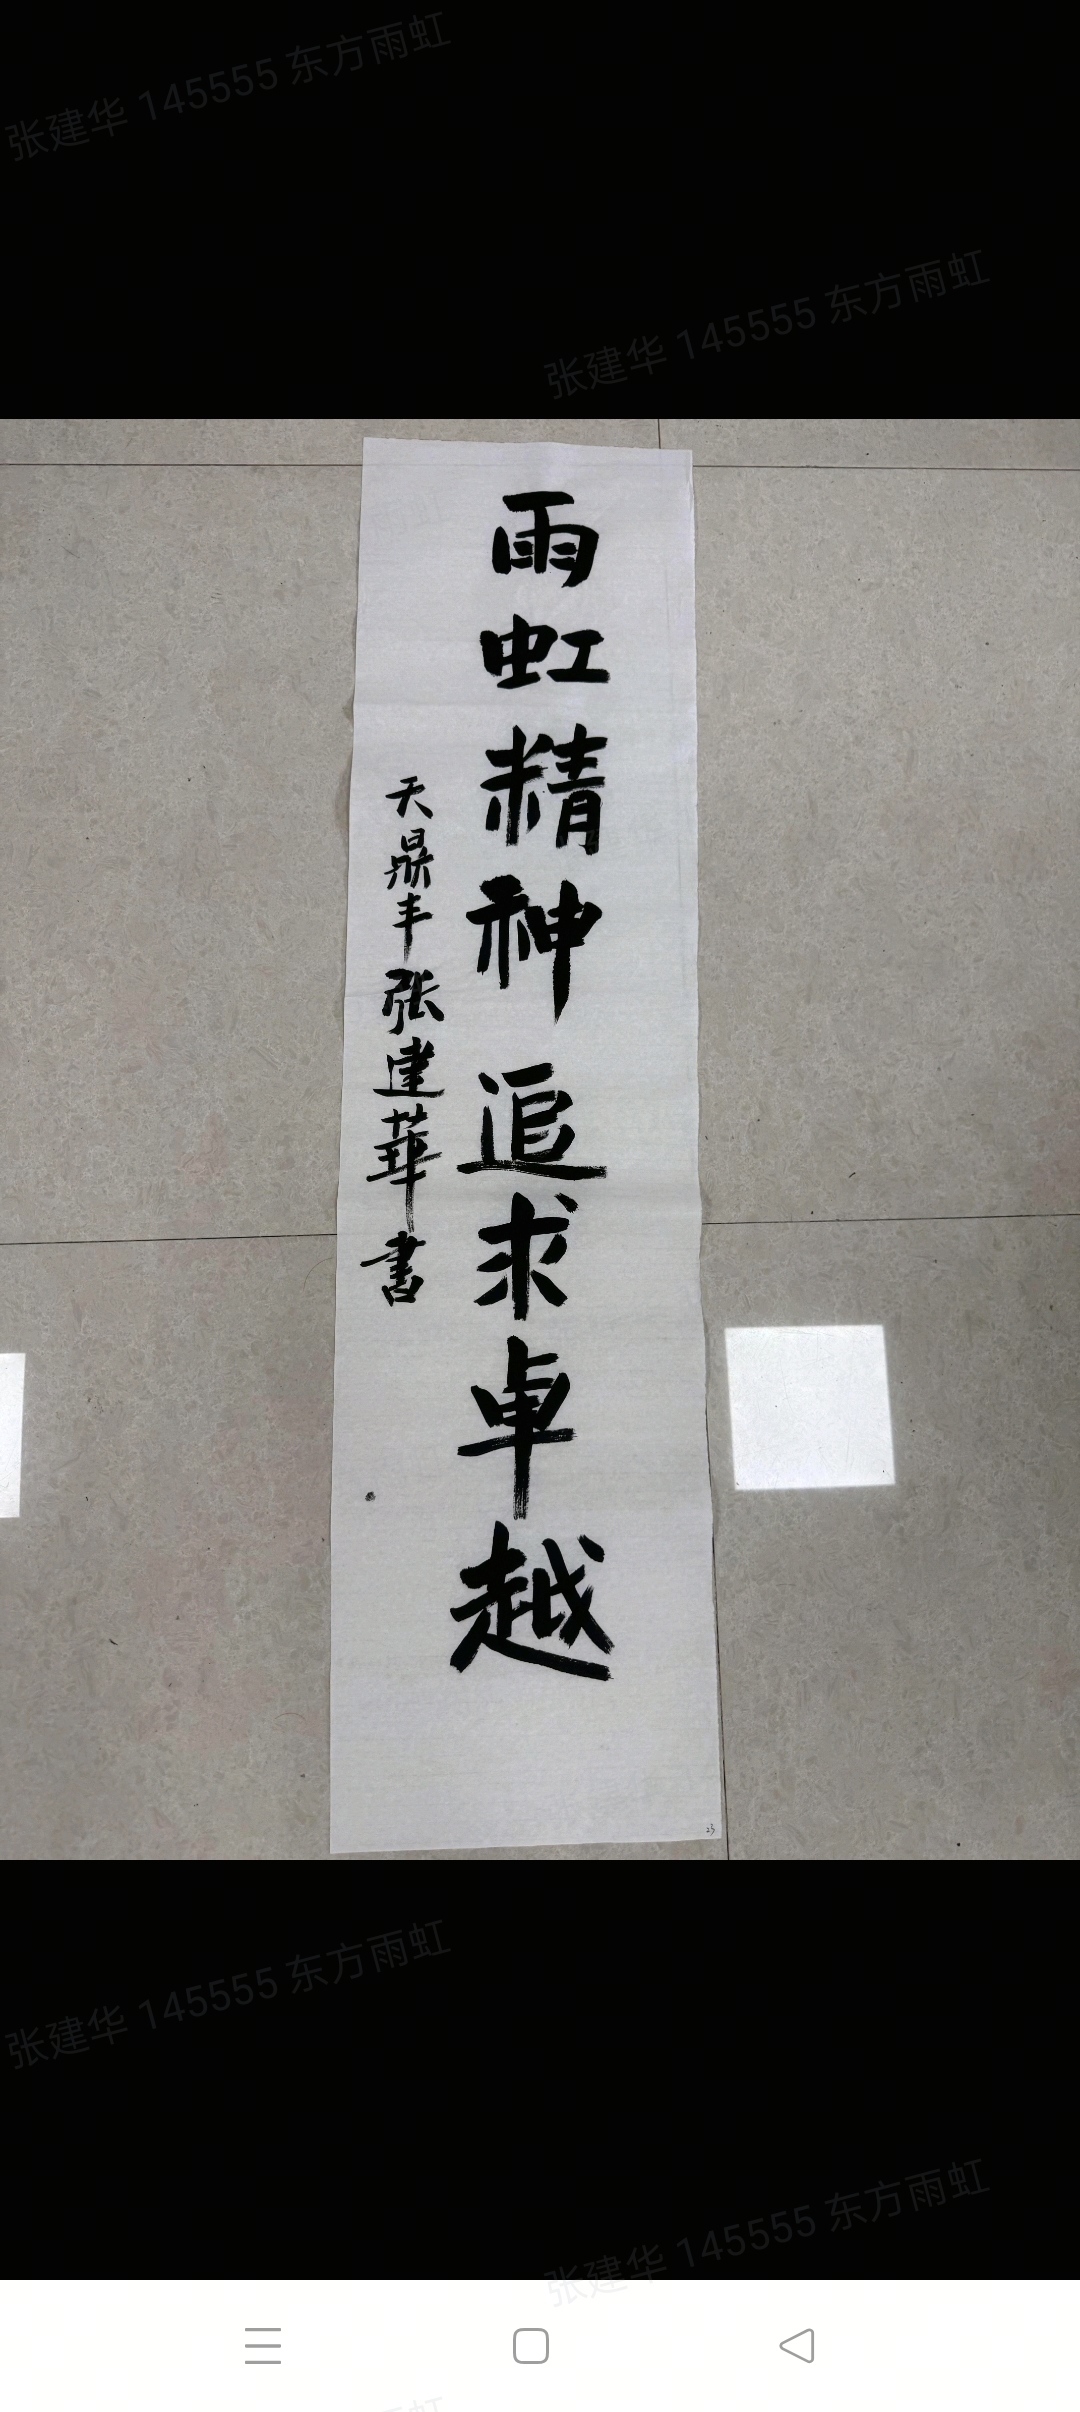 张建华 145555 东方雨虹
张建华 145555 东方雨虹
雨虹精神 追求卓越
天鼎丰張建華書
张建华 145555 东方雨虹
张建华 145555 东方雨虹